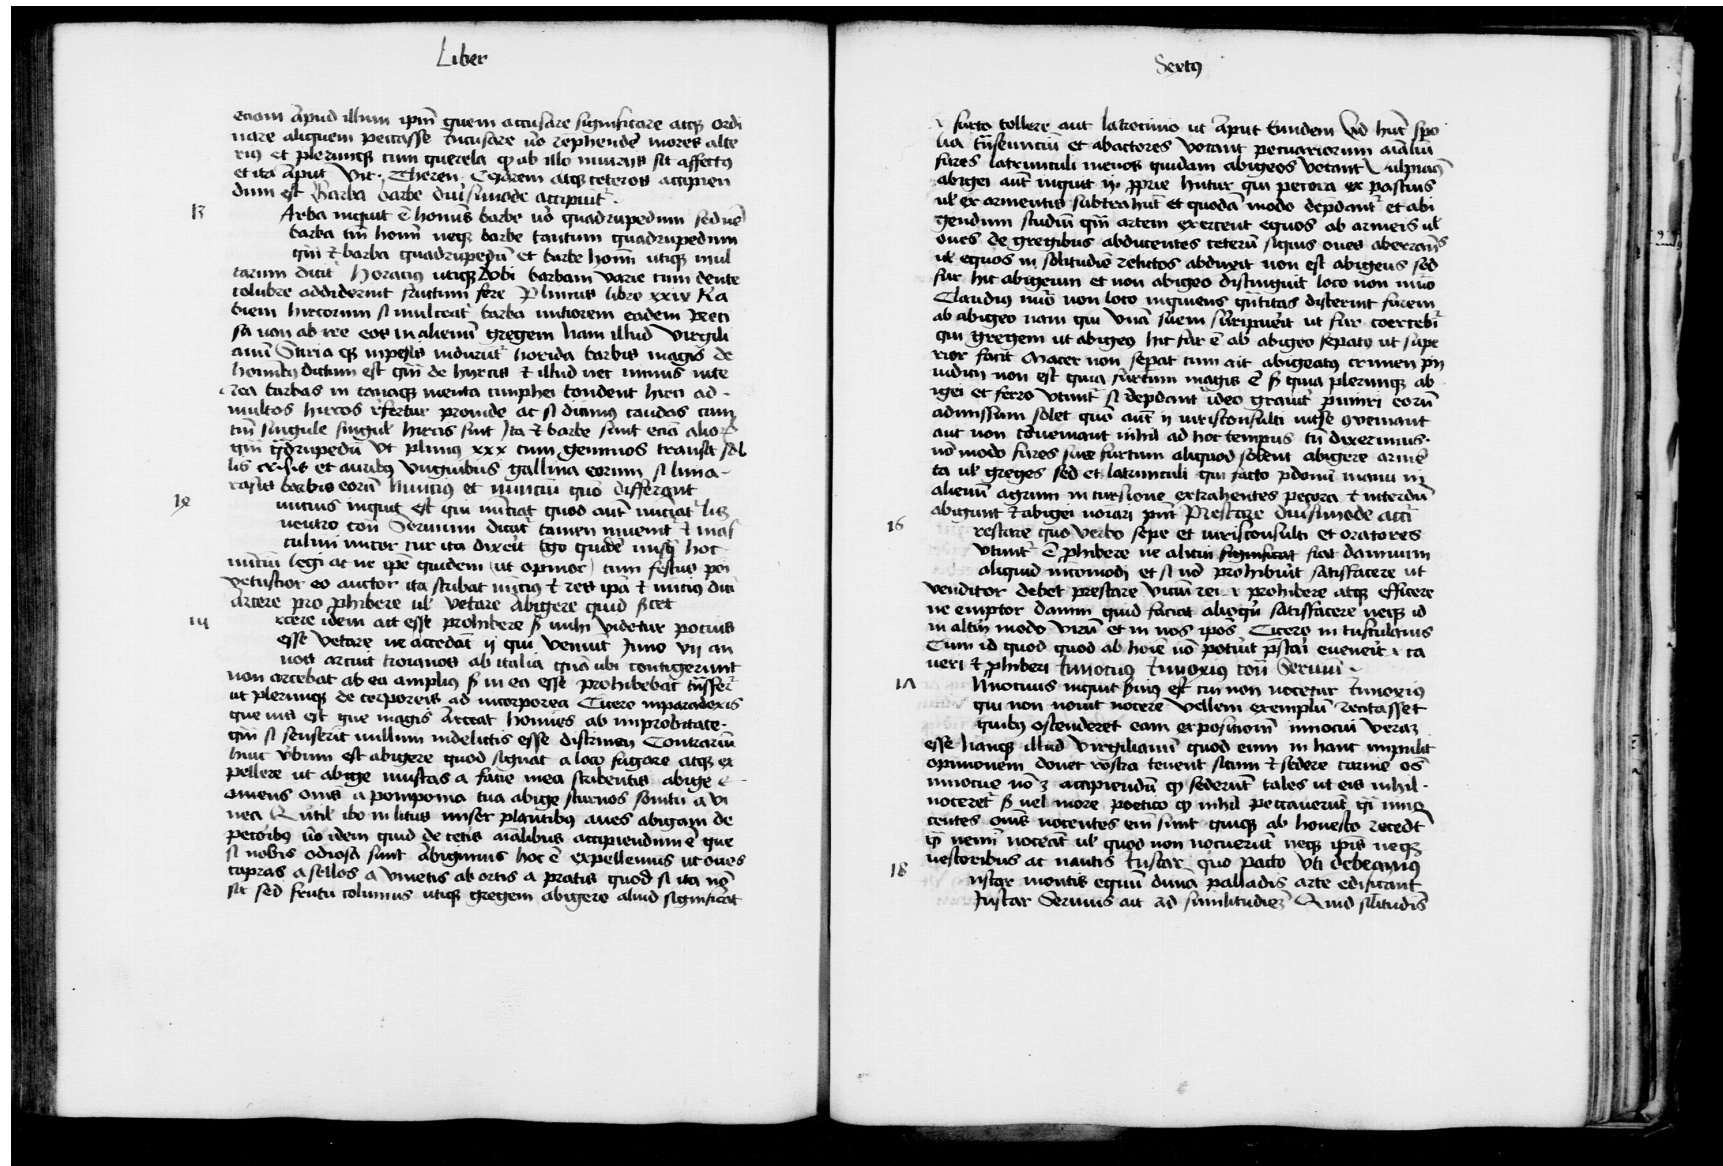 Liber
etiam apud illum ipm̄ quem accusare significare atqꝫ ordi
nare aliquem peccasse Incusare v̄o rephendē mores alte
rius et plerunqꝫ cum querela qꝫ ab illo iniuriis sit affectus
et ita aput Vir. Theren. Cesarem atqꝫ ceteros accipien
dum est Barba barbe diuersimode accipiūt
13
Arba inquit ē hominis barbe v̄o quadrupedum sed nec
barba tm̄ homī neqꝫ barbe tantum quadrupedum
qm̄ et barba quadrupedū et barbe homī utiqꝫ mul
tarum dicit Horacius utiqꝫ barbam varie cum dente
colubre addiderint furtim fere Plinius libro xxiv Ra
biem hircorum si mulceat barba mitiorem eadem preci
sa non ab ire eos in alienū gregem Nam illud Virgili
anū Stiria qꝫ inpexis indurūt horrida barbis magis de
hominibꝰ dictum est qm̄ de hyrcis et illud nec minus inte
rea barbas in canaqꝫ menta cinphei tondent hirci ad
multos hircos refertur proinde ac si dicamus caudas cum
tm̄ singule singulis hircis sint Ita et barbe sunt eciā alioꝝ
qm̄ qdrupedū Vt plinius xxx cum geminos transit sol
lis et auribꝰ vnguibus gallina eorum si lima
rasis barbis eorū Nuncius et nuncium quo differant
14
uncius inquit est qui nunciat quod autē nunciat͛ lꝫ
neutro Coñ Seruium dicat͛ tamen inuenit͛ et mas
culini miror cur ita dixerit Ego quidē nusqꝫ hoc
nuncium legi at ne ipē quidem (ut opinor) cum festus pom
vetustior eo auctor ita scribat nūcius et res ipā et nūcius dici
Arcere pro prohibere vel vetare Abigere quid
15
rcere idem ait esse prohibere sꝫ mihi videtur potius
esse vetare ne accedāt ij qui veniūt Juno vij an
nos arcuit troianos ab italia quā ubi contigerunt
non arcebat ab ea amplius sꝫ in ea esse prohibebat tn̄sfer͛
ut plerunqꝫ de corporeis ad incorporea Cicero inparadoxis
que uis est que magis Arceat homines ab improbitate
qm̄ si senserit nullum indelictis esse discrimen Contrariū
huic verbum est abigere quod signat a loco fugare atqꝫ ex
pellere ut abige muscas a facie mea scribentis abige
omens oms a pomponia tua abige sturnos sonitu a vi
nea Quintil ibo in litus miser plantibus aues abigam de
pecoribꝰ v̄o idem quid de cetis aialibus accipiendum ē que
si nobis odiosa sunt Abigimus hoc ē expellemus ut oues
capras asellos a vinetis ab ortis a pratis quod si ita nō
sit sed fructu colimus utiqꝫ gregem abigere aliud significat
Sextꝰ
furto tollere aut latrocinio ut Aput Eundem Vid huc spo
lia trāseuncium et abactores vocant pecuariorum aialiū
fures latrunculi menos quidam abigeos vocant Vulpianꝰ
abigei aut inquit ij proprie hntur qui pecora ex pascuis
vel ex armentis subtrahūt et quodā modo depdant͛ et abi
gendum studiū qm̄ artem exercent equos ab armeis vel
oues de gregibus abducentes ceterū siquis oues aberrantes
vel equos in solitudine relictos abduxit non est abigeus sed
fur hic abigeum et non abigeo distinguit loco non nūo
Claudius nūo non loco inquiens qn̄titas discernit furem
ab abigeo nam qui vnā suem surripuerit ut fur coercebit͛
qui gregem ut abigeꝰ hic fur ē ab abigeo separatꝰ ut supe
rior facit Macer non sepat cum ait abigeatꝰ crimen pū
iudicij non est quia furtum magis ē sꝫ quia plerunqꝫ ab
igei et ferro vtunt͛ si depdant͛ ideo grauit͛ puniri eorū
admissum solet quō autē ij iurisconsulti inter se conueniant
aut non conueniant nihil ad hoc tempus tū dixerimus
nō modo fures siue furtum aliquod solent abigere armē
ta vel greges sed et latrunculi qui facto pdonū manu in
alienū agrum incursione extrahentes pecora et interdū
abigunt et abigei noīari pn̄t Prestare diuersimode acci
16
restare quo verbo sepe et iurisconsulti et oratores
vtunt͛ ē prohibere ne alicui significat fiat damnum
aliquid incomodi et si nō prohibuit satisfacere ut
venditor debet prestare viciū rei i prohibere atqꝫ efficere
ne emptor damni quid faciat alioqn̄ satisfacere neqꝫ id
in altū modo virū et in nos ipos Cicero in tusculanis
Cum id quod quod ab hoīe nō potūit pstari eueneit i ca
ueri et phiberi Innocuus Innoxius coñ Seruiū
17
Nnocuus inquit Seruiꝰ est cui non nocetur Innoxius
qui non nouit nocere vellem exemplū recitasset
quibus ostenderet eam expositionē innocui veraꝫ
esse hancqꝫ illud virgilianū quod eum in hanc impulit
opinionem donec rostra tenent sicum et sedere carine oēs
innocue nō ꝫ accipiendū qꝫ sederūt tales ut eis nihil
noceret sꝫ vel more poetico qꝫ nihil peccauerūt qi inno
centes omnis nocentes em̄ sunt quiqꝫ ab honesto recedt
qn̄ nemī nocent vel quod non nocuerūt neqꝫ ipis neqꝫ
vectoribus ac nautis Instar quo pacto vti debeamus
18
nstar montis equm diuīa palladis arte edificant
Instar Seruius ait ad similitudinez Quid silitudis